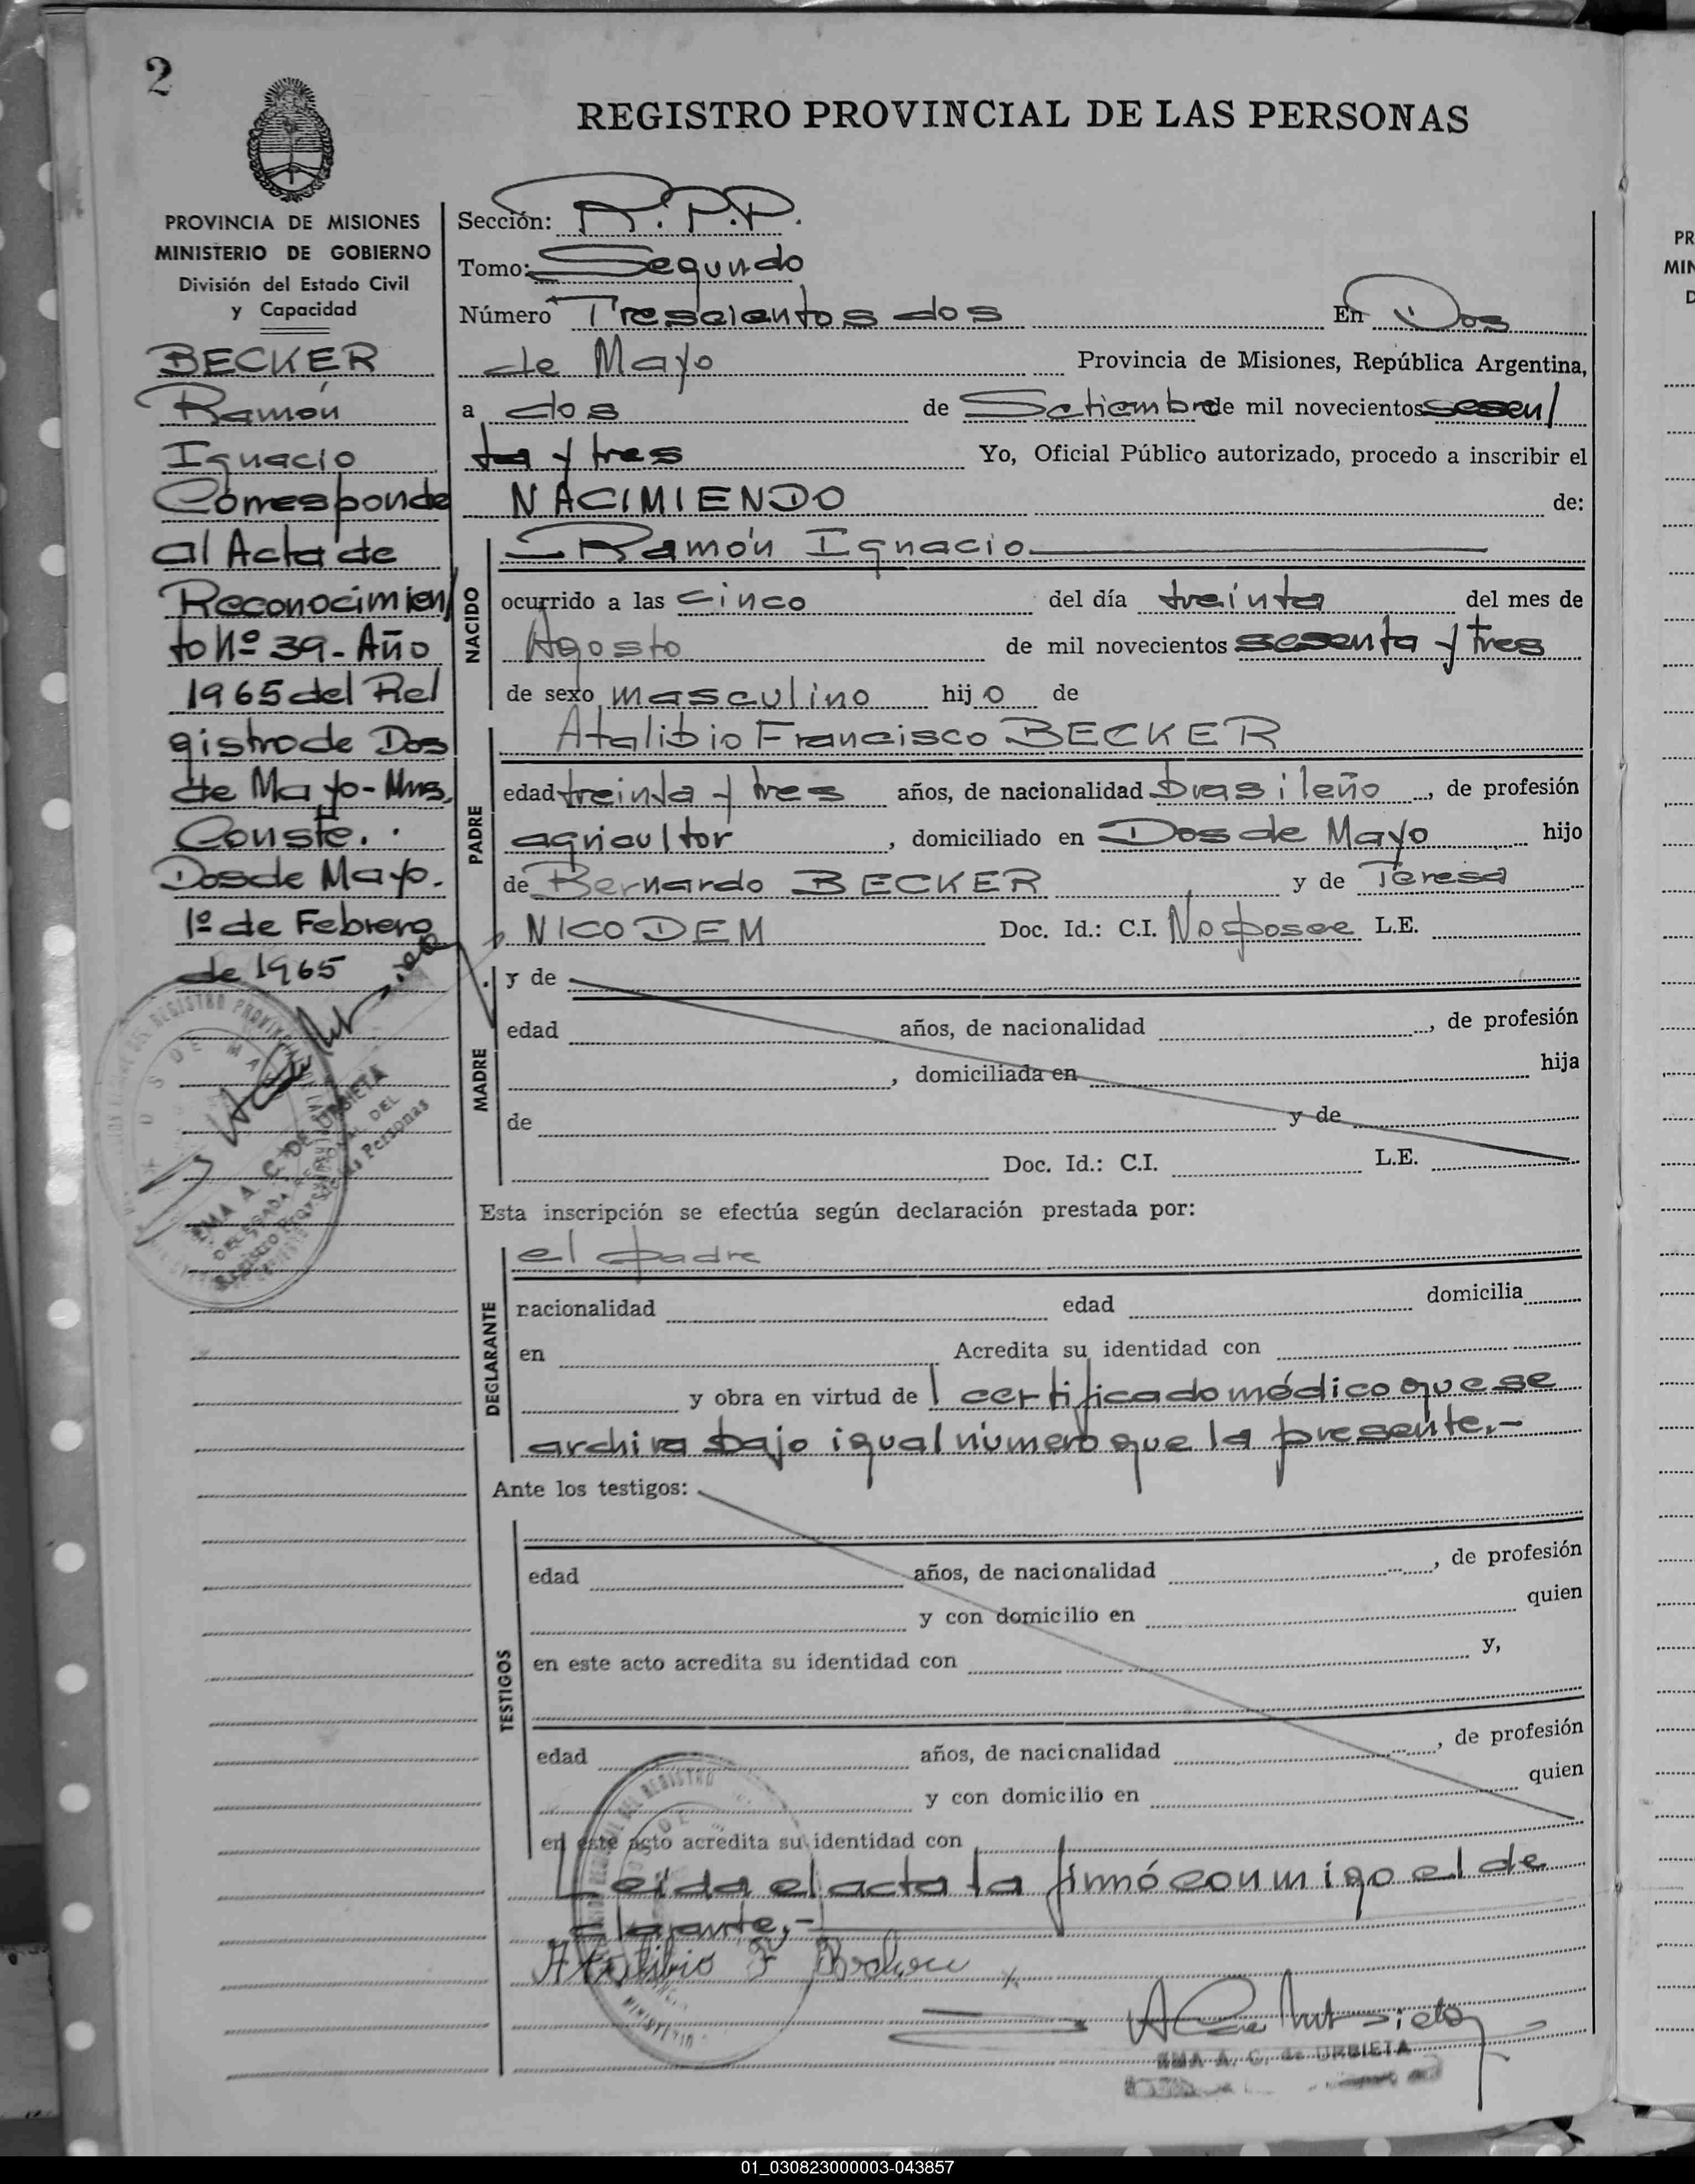 2
REGISTRO PROVINCIAL DE LAS PERSONAS
PROVINCIA DE MISIONES
MINISTERIO DE GOBIERNO
División del Estado Civil
y Capacidad
BECKER
Ramón
Ignacio
Corresponde
al Acta de
Reconocimien/
to Nº 39-Año
1965 del Re/
gistro de Dos
de Mayo-Mns.
Conste.
Dos de Mayo.
1º de Febrero
de 1965
EMA A. C. DE URBIETA
Sección: R.P.P.
Tomo: Segundo
Número Trescientos dos En Dos
de Mayo Provincia de Misiones, República Argentina,
a dos de Setiembre de mil novecientos sesen/
ta y tres Yo, Oficial Público autorizado, procedo a inscribir el
NACIMIENDO de:
NACIDO
Ramón Ignacio
ocurrido a las cinco del día treinta del mes de
Agosto de mil novecientos sesenta y tres
de sexo masculino hijo de
PADRE
Atalibio Francisco BECKER
edad treinta y tres años, de nacionalidad brasileño, de profesión
agricultor, domiciliado en Dos de Mayo hijo
de Bernardo BECKER y de Teresa
NICODEM Doc. Id.: C.I. No posee L.E.
MADRE
y de
edad años, de nacionalidad , de profesión
, domiciliada en hija
de y de
Doc. Id.: C.I. L.E.
Esta inscripción se efectúa según declaración prestada por:
DECLARANTE
el padre
nacionalidad edad domicilia
en Acredita su identidad con
y obra en virtud de 1 certificado médico que se
archiva bajo igual número que la presente.-
Ante los testigos:
TESTIGOS
edad años, de nacionalidad , de profesión
y con domicilio en quien
en este acto acredita su identidad con y,
edad años, de nacionalidad , de profesión
y con domicilio en quien
en este acto acredita su identidad con
Leída el acta la firmó conmigo el de
clarante.-
Atalibio F Becker
EMA A. C. de URBIETA
01_030823000003-043857